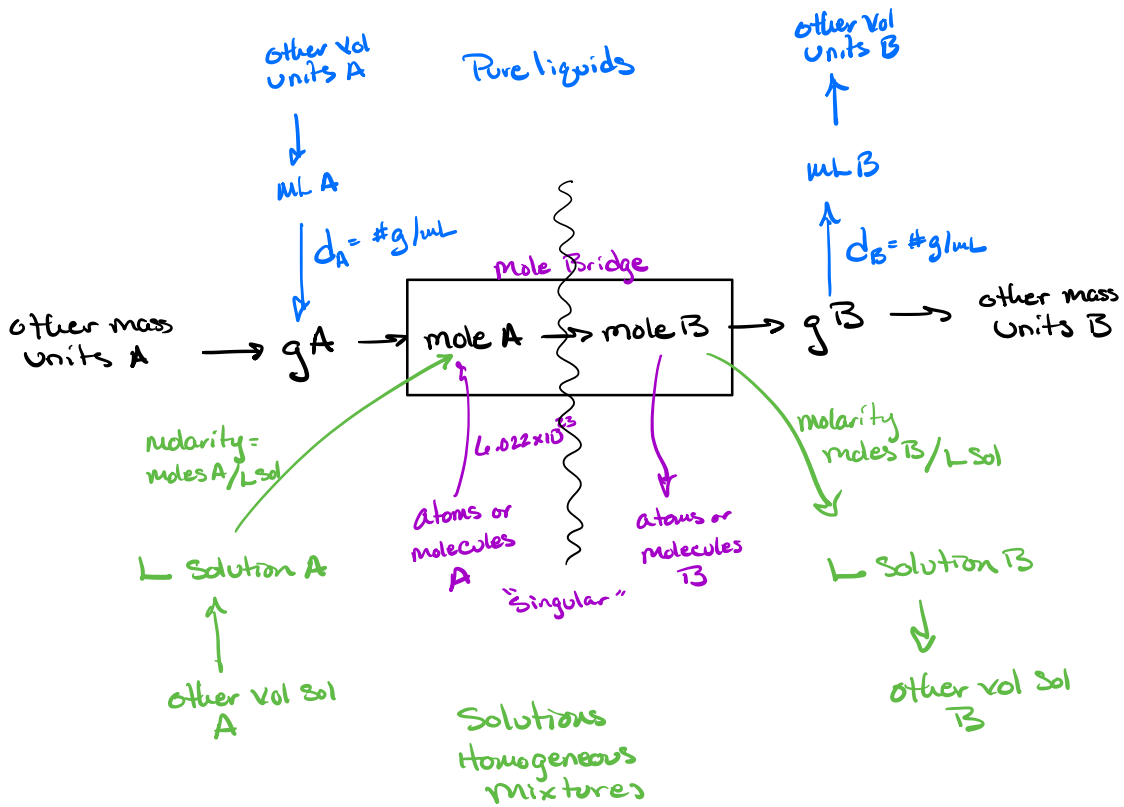 other vol
units A
Pure liquids
other vol
units B
mL A
mL B
dA = #g/mL
dB = #g/mL
Mole Bridge
other mass
units A
gA
mole A
mole B
gB
other mass
units B
molarity =
moles A/L sol
6.022x10²³
molarity
moles B/L sol
atoms or
molecules
A
atoms or
molecules
B
L solution A
L solution B
"singular"
other vol sol
A
other vol sol
B
Solutions
Homogeneous
mixtures